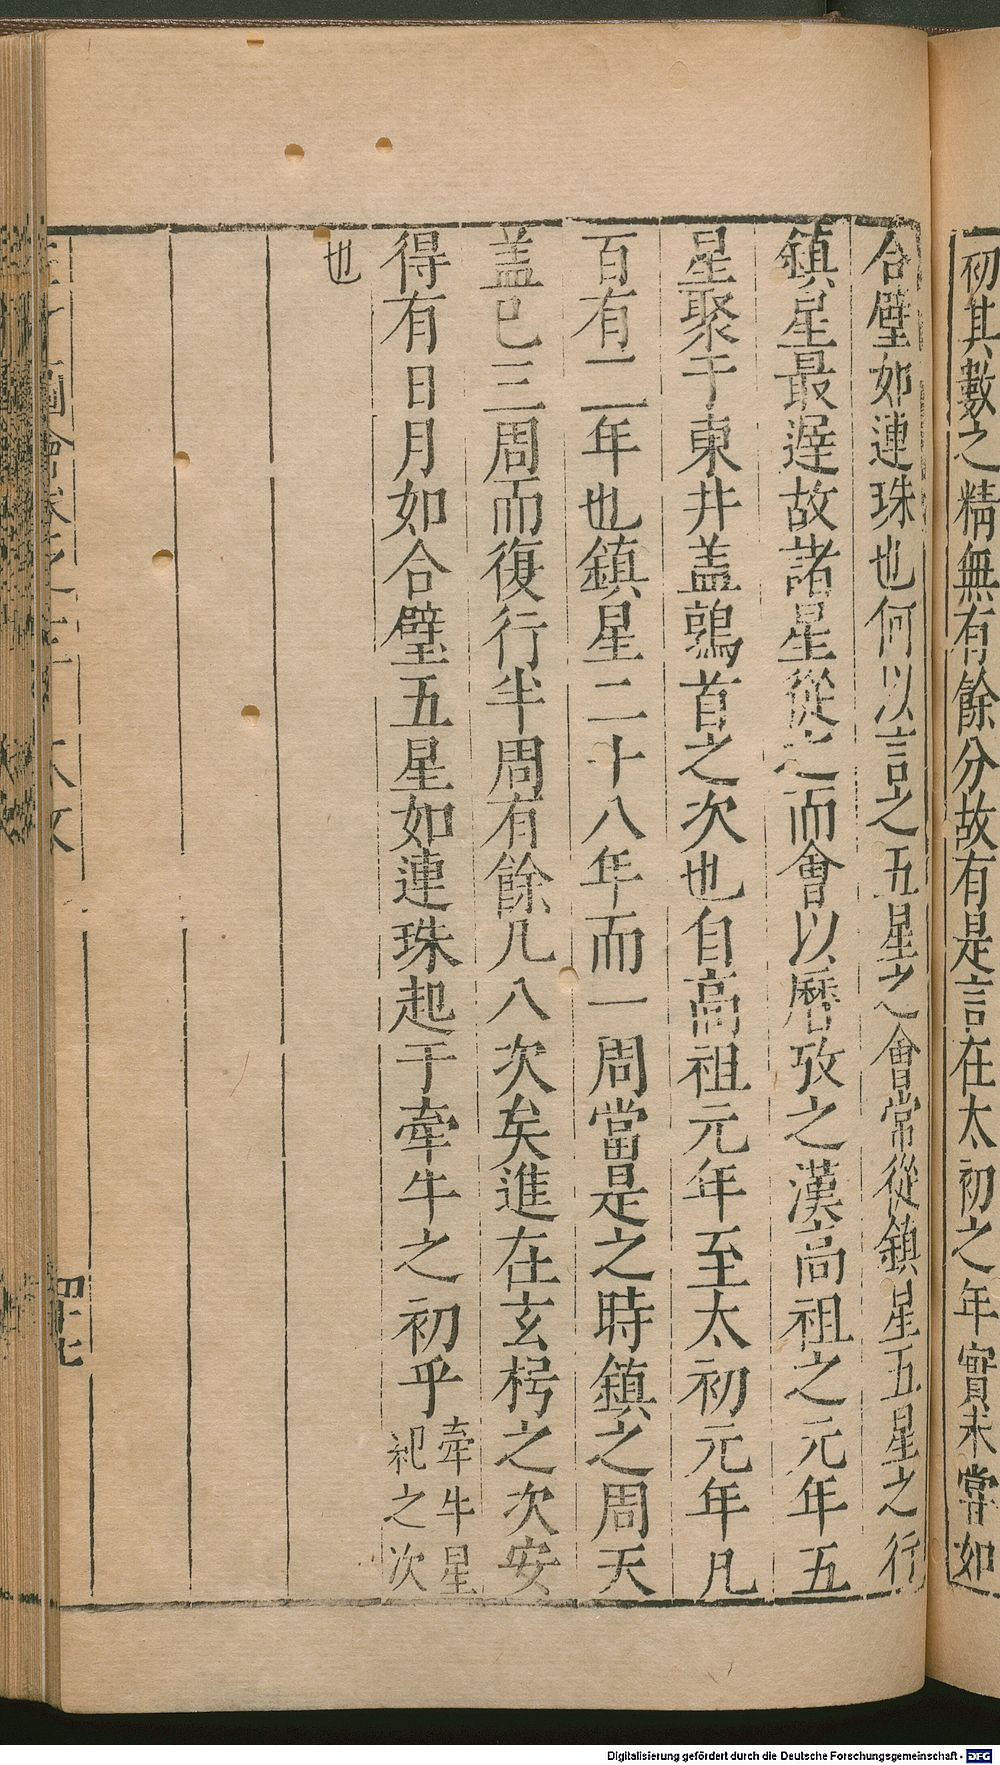 初其數之精無有餘分故有是言在太初之年實未嘗如
合璧如連珠也何以言之五星之會常從鎮星五星之行
鎮星最遲故諸星從之而會以曆攷之漢高祖之元年五
星聚于東井盖鶉首之次也自高祖元年至太初元年凡
百有二年也鎮星二十八年而一周當是之時鎮之周天
盖巳三周而復行半周有餘凡八次矣進在玄枵之次安
得有日月如合璧五星如連珠起于牽牛之初乎牽牛星
祀之次
也
四十七
Digitalisierung gefördert durch die Deutsche Forschungsgemeinschaft - DFG